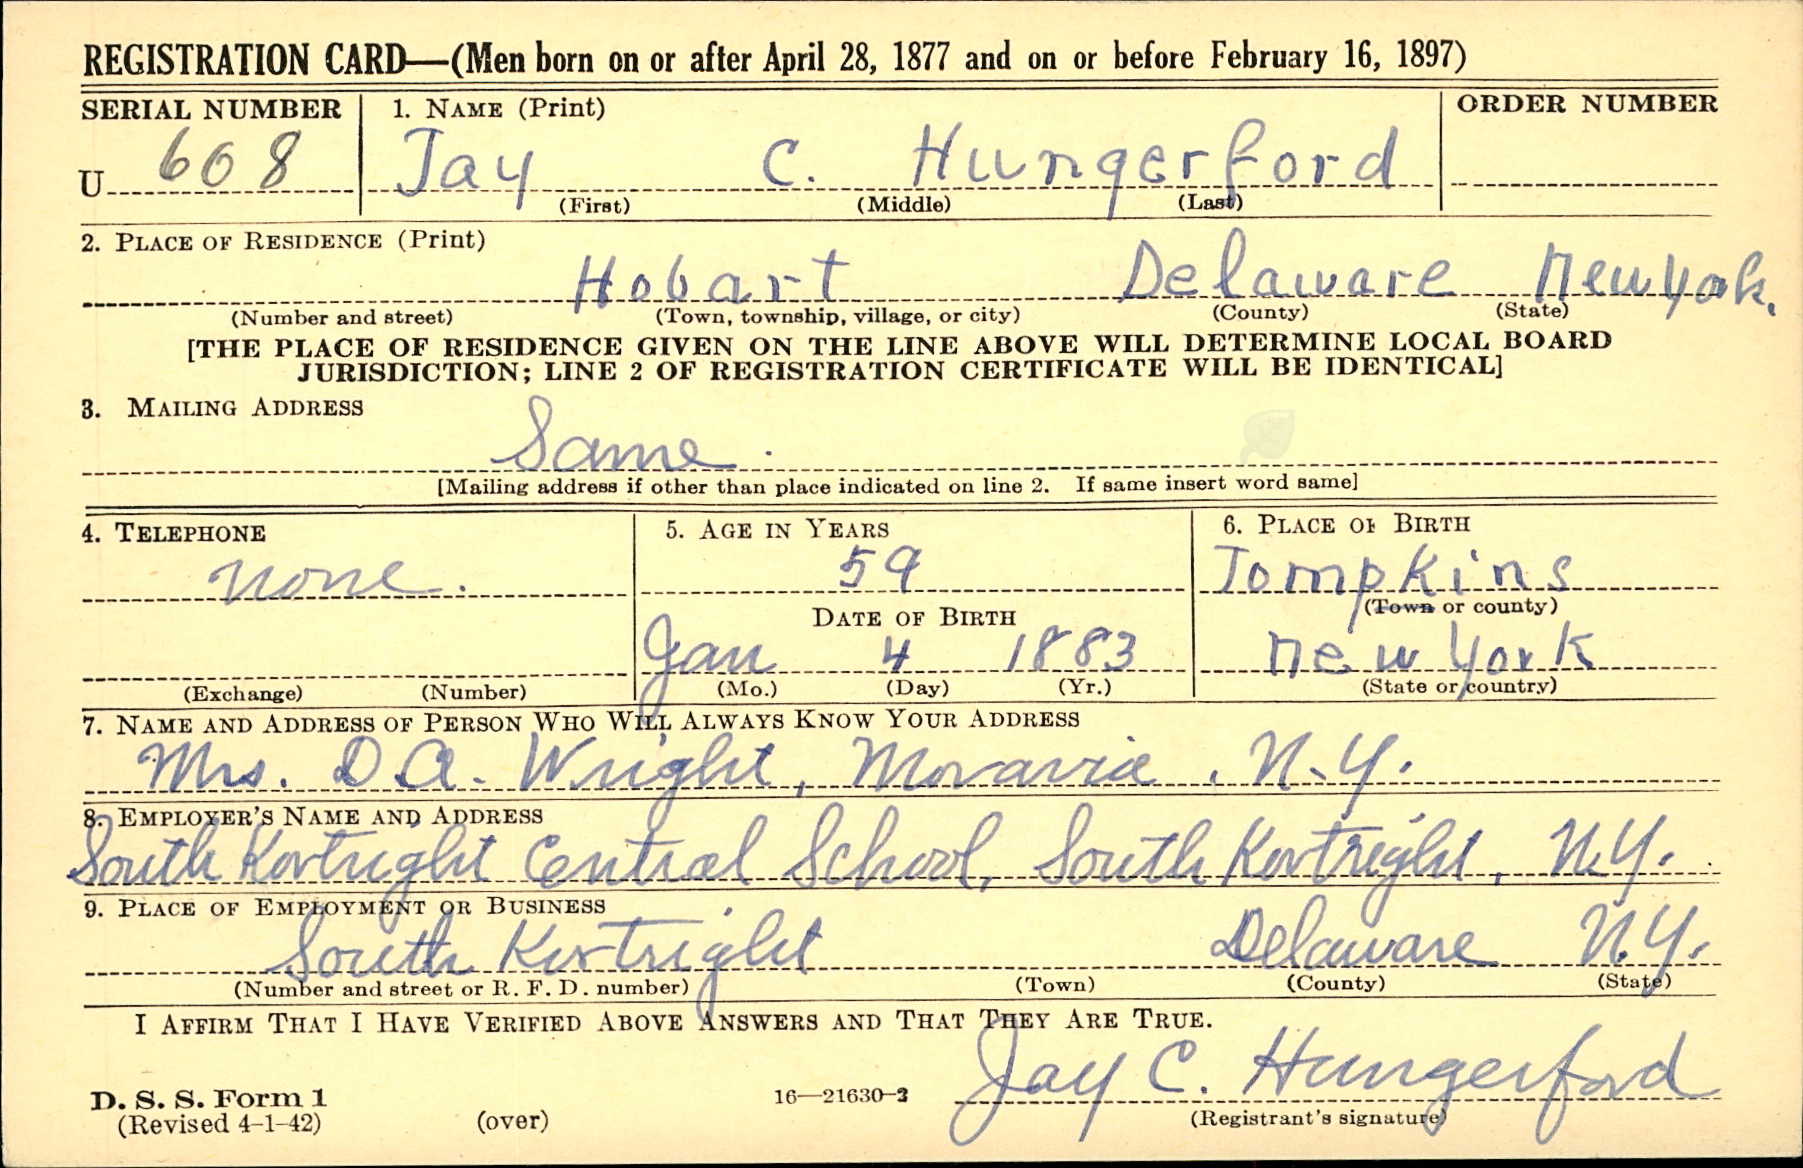 REGISTRATION CARD—(Men born on or after April 28, 1877 and on or before February 16, 1897)
SERIAL NUMBER 1. NAME (Print) ORDER NUMBER
U 608 Jay C. Hungerford
(First) (Middle) (Last)
2. PLACE OF RESIDENCE (Print)
Hobart Delaware New York.
(Number and street) (Town, township, village, or city) (County) (State)
[THE PLACE OF RESIDENCE GIVEN ON THE LINE ABOVE WILL DETERMINE LOCAL BOARD
JURISDICTION; LINE 2 OF REGISTRATION CERTIFICATE WILL BE IDENTICAL]
3. MAILING ADDRESS
Same.
[Mailing address if other than place indicated on line 2. If same insert word same]
4. TELEPHONE 5. AGE IN YEARS 6. PLACE OF BIRTH
None. 59 Tompkins
(Town or county)
DATE OF BIRTH
Jan 4 1883 New York
(Exchange) (Number) (Mo.) (Day) (Yr.) (State or country)
7. NAME AND ADDRESS OF PERSON WHO WILL ALWAYS KNOW YOUR ADDRESS
Mrs. D.A. Wright, Moravia, N.Y.
8. EMPLOYER'S NAME AND ADDRESS
South Kortright Central School, South Kortright, N.Y.
9. PLACE OF EMPLOYMENT OR BUSINESS
South Kortright Delaware N.Y.
(Number and street or R. F. D. number) (Town) (County) (State)
I AFFIRM THAT I HAVE VERIFIED ABOVE ANSWERS AND THAT THEY ARE TRUE.
Jay C. Hungerford
D. S. S. Form 1 16—21630-2
(Revised 4-1-42) (over) (Registrant's signature)